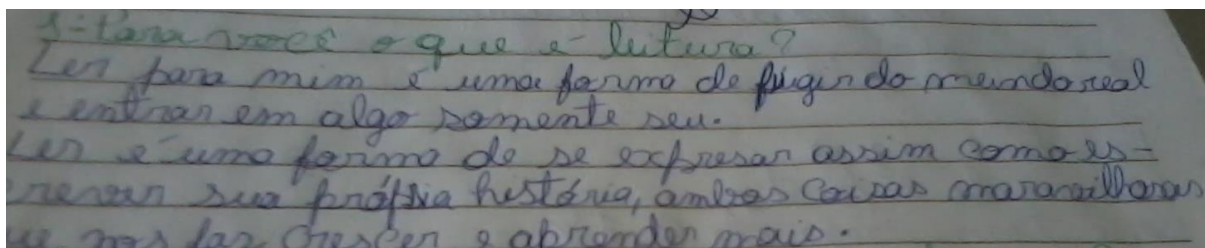 1- Para você o que é leitura?
Ler para mim é uma forma de fugir do mundo real
e entrar em algo somente seu.
Ler é uma forma de se expresar assim como es-
crever sua própria história, ambas coisas maravilhosas
que nos faz crescer e aprender mais.